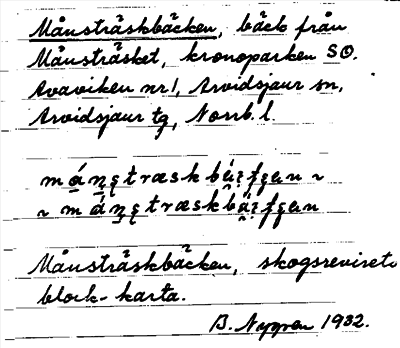 Månsträskbäcken, bäck från
Månsträsket, kronoparken SO.
Avaviken nr 1, Arvidsjaur sn,
Arvidsjaur tg, Norrb. l.
Månsträskbäcken, skogsrevisets
block-karta.
B. Nygren 1932.